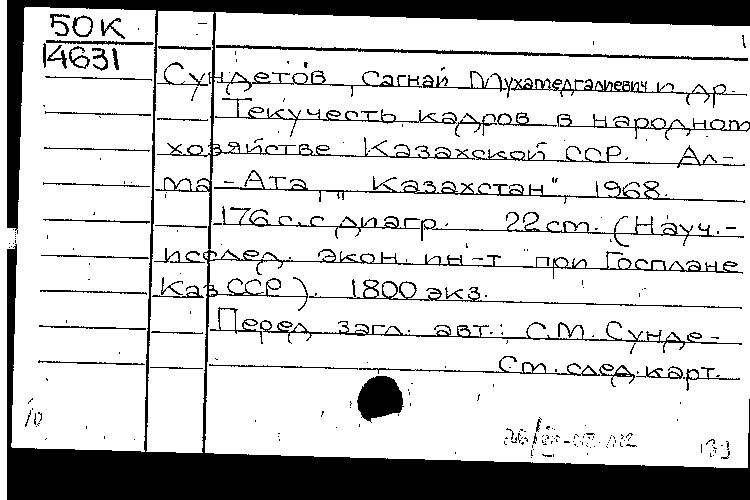 50К
14631
Сундетов, Сагнай Мухамедгалиевич и др.
Текучесть кадров в народном
хозяйстве Казахской ССР. Ал-
ма-Ата, "Казахстан", 1968.
176 с. с диагр. 22 ст. (Науч.-
исслед. экон. ин-т при Госплане
КазССР). 1800 экз.
Перед загл. авт.: С.М. Сунде-
См. след. карт.
10
139